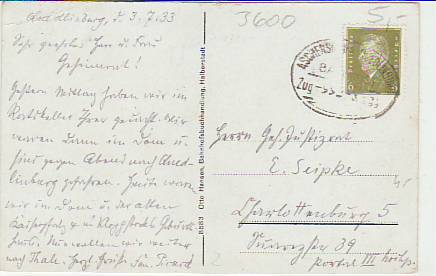 Quedlinburg, d. 3.7.33
Sehr geehrter Herr und Frau
Geheimrat!
Gestern Mittag haben wir im
Ratskeller Ihrer gedacht. Wir
waren dann im Dom u.
sind gegen Abend nach Qued-
linburg gefahren. Heute waren
wir im Dom u. der alten
Kaiserpfalz u. Klopstocks Geburts-
haus. Nun wollen wir weiter
nach Thale. Herzl. Grüße
8563 Otto Hansen, Bahnhofsbuchhandlung, Halberstadt
3600
5,-
ASCHERSL
Zug
6
Herrn Geh. Justizrat
E. Seipke
Charlottenburg 5
Suarezstr 39
Portal III